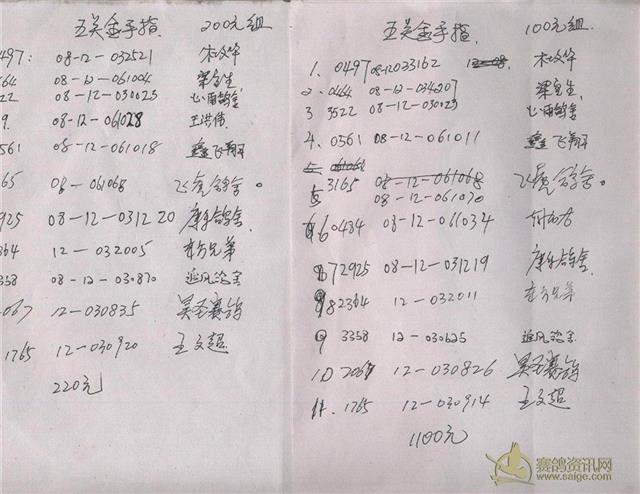 五关金手指 200元组
0497: 08-12-032521
464 08-12-061004
522 08-12-030025
9. 08-12-061028 王洪伟
561 08-12-061018 鑫飞翔
65 08-061068 飞虎鸽舍。
925 08-12-031220 康乐鸽舍
364 12-032005 东方兄弟
358 08-12-030870 追风鸽舍
067 12-030835 昊圣赛鸽
1765 12-030920 王文超
220元
五关金手指 100元组
1. 0497 08-12 033162
2. 0464 08-12-034207
3 3522 08-12-030029
4. 0561 08-12-061011 鑫飞翔
5 3165 08-12-061068 飞虎鸽舍。
08-12-061070
6 0484 08-12-061034
72925 08-12-031219 康乐鸽舍
82364 12-032011 东方兄弟
9 3358 12-030625 追风鸽舍
10 2067 12-030826 昊圣赛鸽
11. 1765 12-030914 王文超
1100元
赛鸽资讯网
www.saige.com